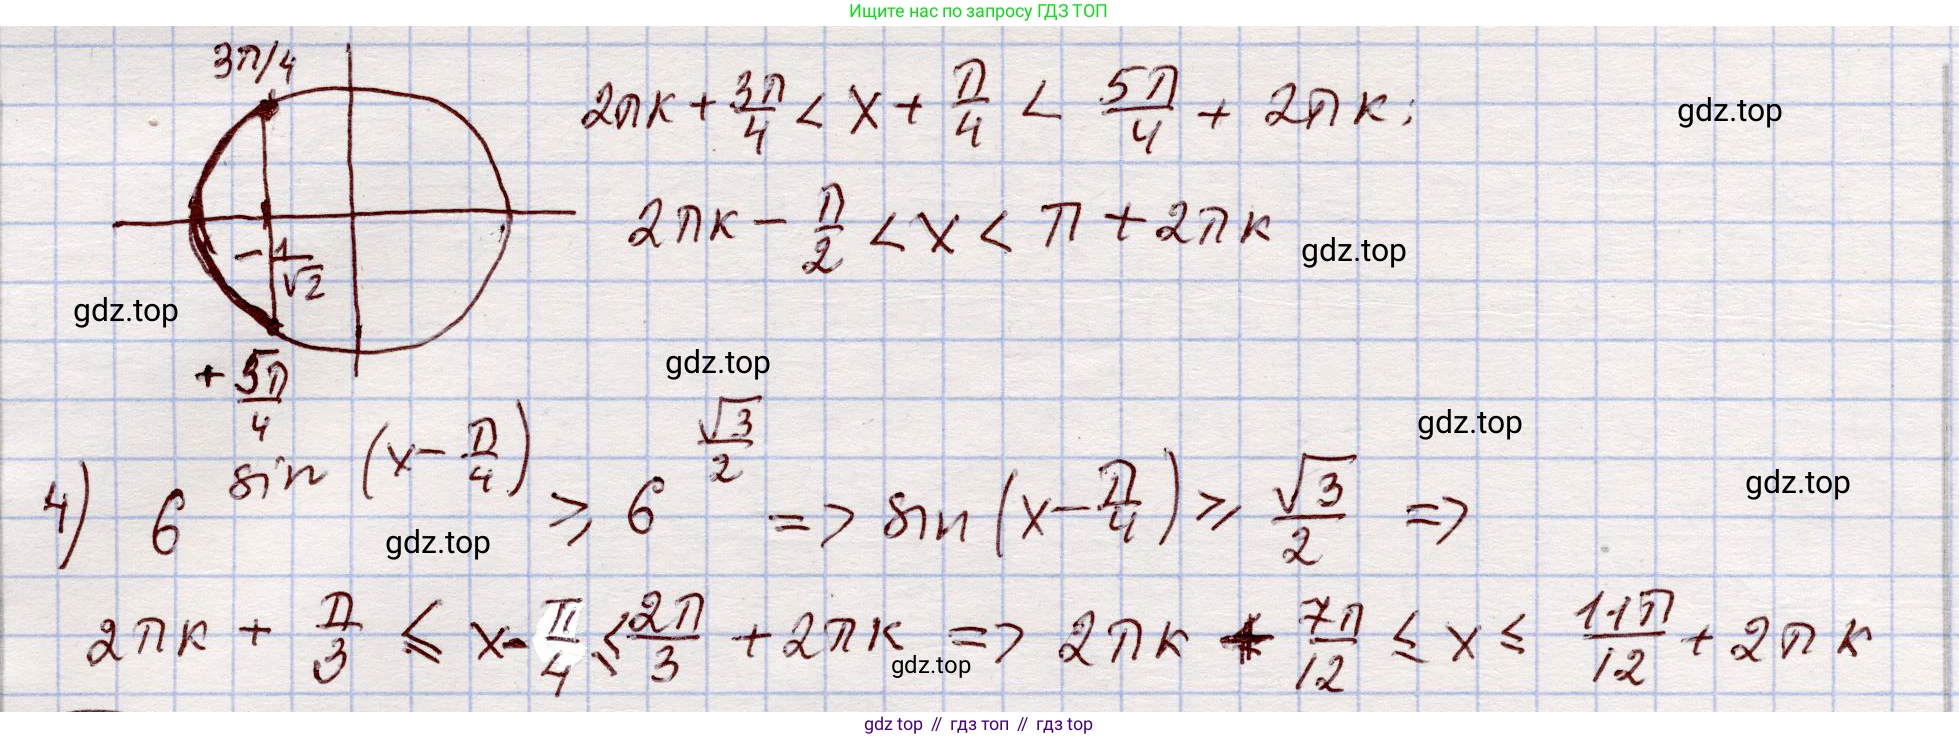 Ищите нас по запросу ГДЗ ТОП
3π/4
2πк + 3π/4 < x + π/4 < 5π/4 + 2πк;
gdz.top
2πк - π/2 < x < π + 2πк
gdz.top
- 1/√2
gdz.top
gdz.top
+ 5π/4
gdz.top
4) 6^sin(x - π/4) ≥ 6^√3/2 => sin(x - π/4) ≥ √3/2 =>
gdz.top
gdz.top
2πк + π/3 ≤ x - π/4 ≤ 2π/3 + 2πк => 2πк + 7π/12 ≤ x ≤ 11π/12 + 2πк
gdz.top
gdz top // гдз топ // гдз top